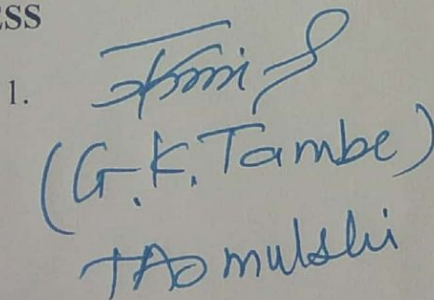 ESS
1.
(G.K. Tambe)
TAO mulshi